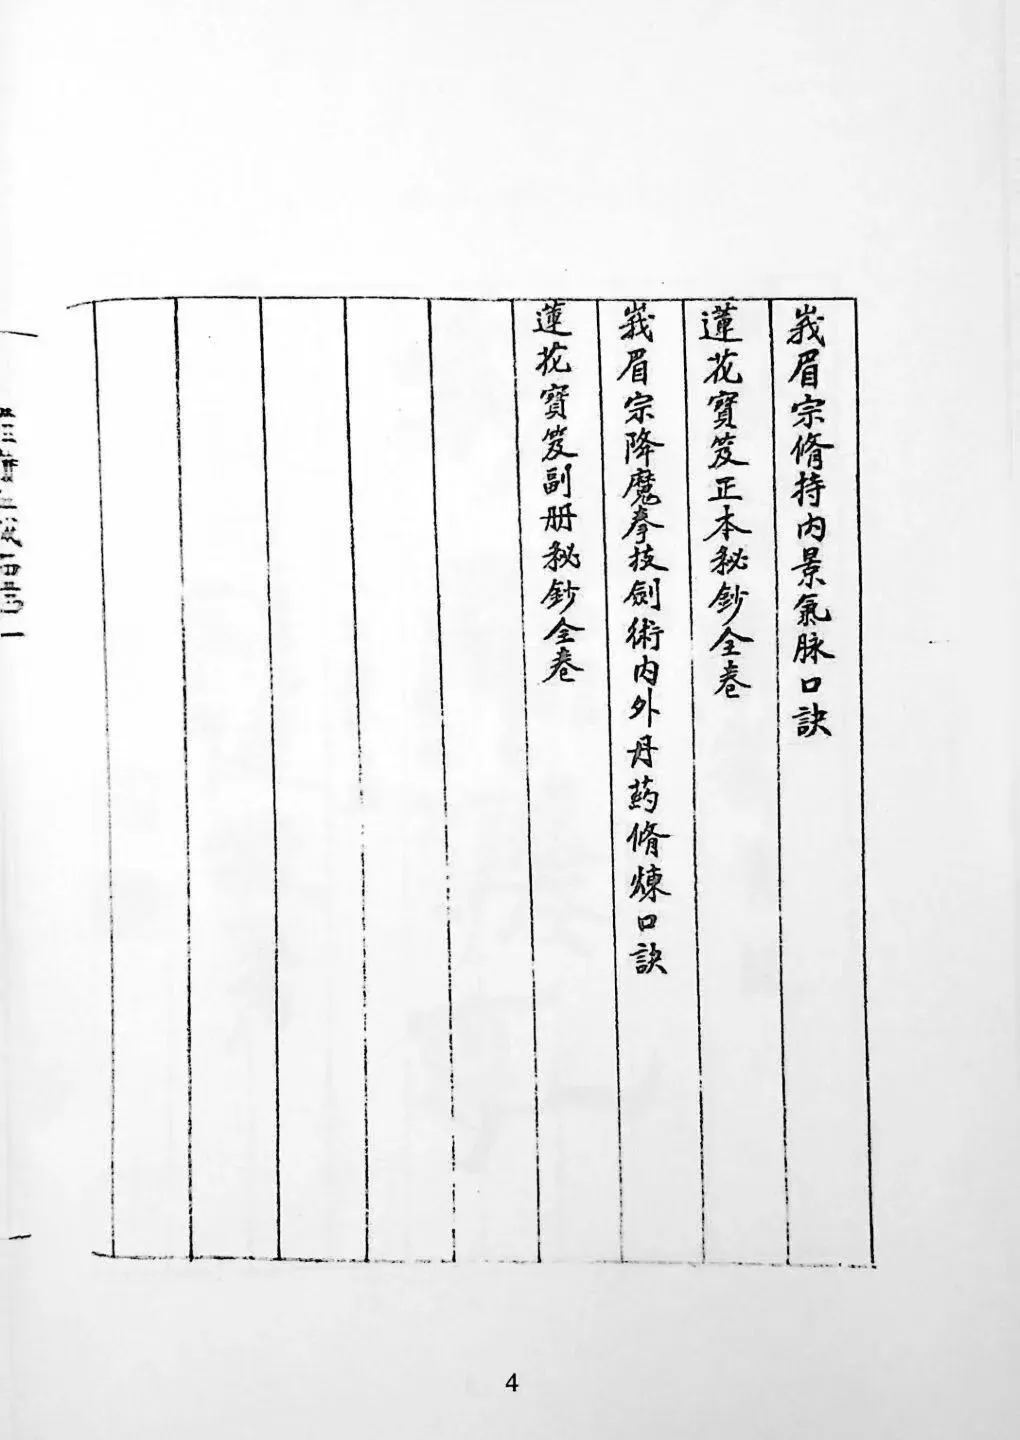 峩眉宗脩持内景氣脉口訣
蓮花寶笈正本秘鈔全卷
峩眉宗降魔拳技劍術内外丹葯脩煉口訣
蓮花寶笈副册秘鈔全卷
4